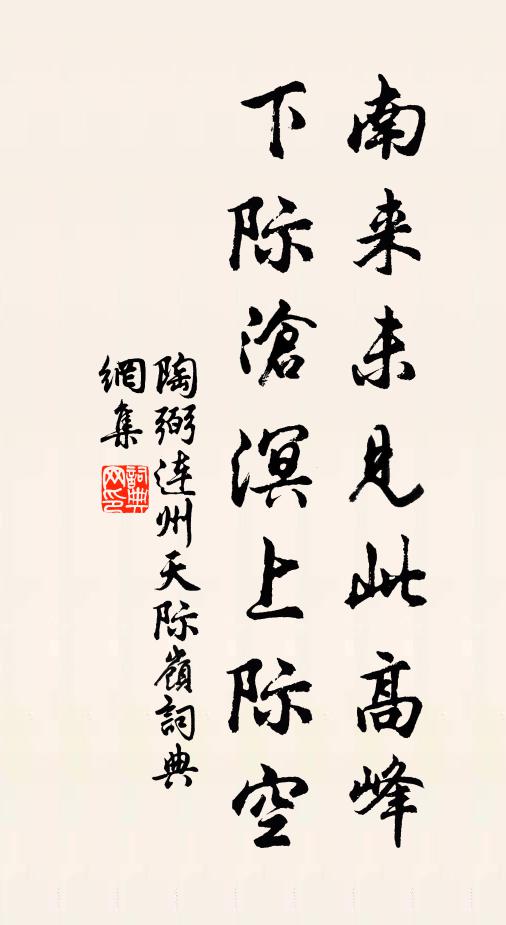 南来未見此高峰
下际滄溟上际空
陶弼连州天际嶺詞典
網集
詞典网印